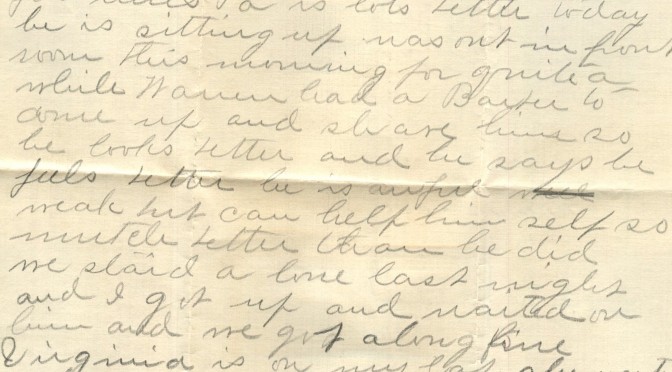 Pa is lots better today
he is sitting up was out in front
room this morning for quite a
while Warren had a Barber to
come up and shave him so
he looks better and he says he
feels better he is awful
weak but can help him self so
mutch better than he did
we staid a lone last night
and I got up and waited on
him and we got along fine
Virginia is on my lap